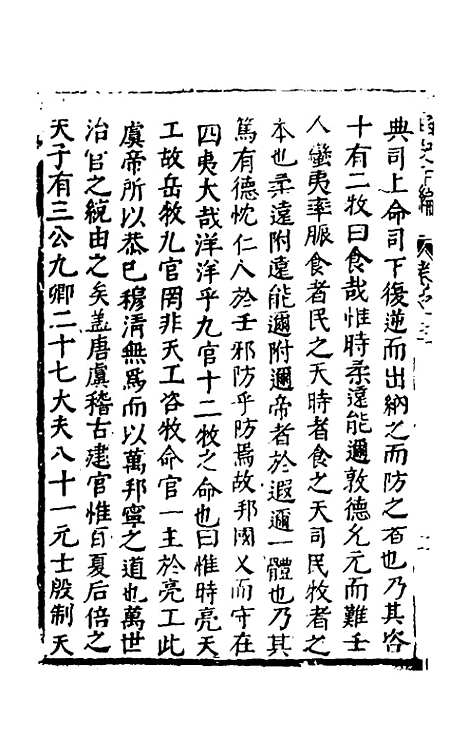 典司上命司下復逆而出納之而防之者也乃其咨
十有二牧曰食哉惟時柔遠能邇敦德允元而難壬
人蠻夷率服食者民之天時者食之天司民牧者之
本也柔遠附遠能邇附邇帝者於遐邇一體也乃其
篤有德忱仁人於壬邪防乎防焉故邦國乂而守在
四夷大哉洋洋乎九官十二牧之命也曰惟時亮天
工故岳牧九官罔非天工咨牧命官一主於亮工此
虞帝所以恭已穆清無爲而以萬邦寧之道也萬世
治官之統由之矣盖唐虞稽古建官惟百夏后倍之
天子有三公九卿二十七大夫八十一元士殷制天
史下編 卷之三